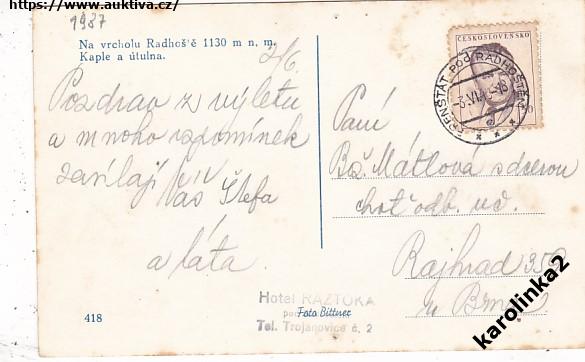 https://www.auktiva.cz/
1937
Na vrcholu Radhoště 1130 m n. m.
Kaple a útulna.
Pozdrav z výletu
a mnoho vzpomínek
zasílají Vás Štefa
a láta.
418
Hotel RAZTOKA
Foto Bittner
Tel. Trojanovice č. 2
ČESKOSLOVENSKO
FRENŠTÁT POD RADHOŠTĚM
Paní
Bož. Mátlová s dcerou
choť odb. uč.
Rajhrad 359
u Brna
karolinka2